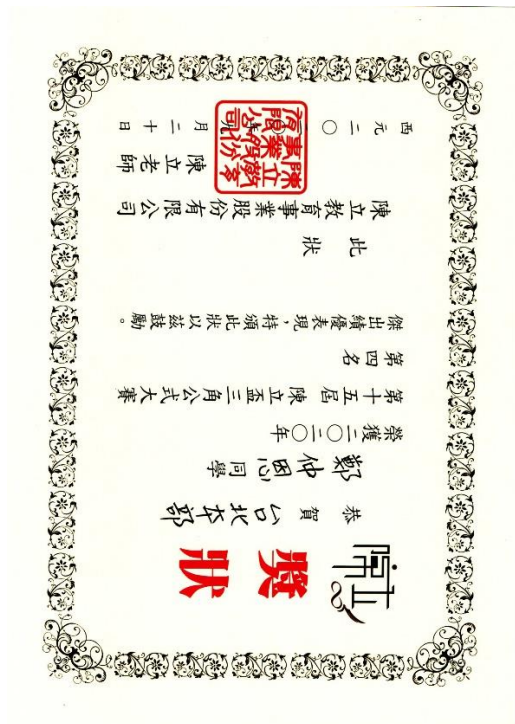 陳立
獎狀
恭賀 台北本部
鄭仲恩同學
榮獲二〇二〇年
第十五屆 陳立盃三角公式大賽
第四名
傑出績優表現，特頒此狀以茲鼓勵。
此狀
陳立教育事業股份有限公司
陳立老師
陳立教育事業股份有限公司
西元二〇 月二十日